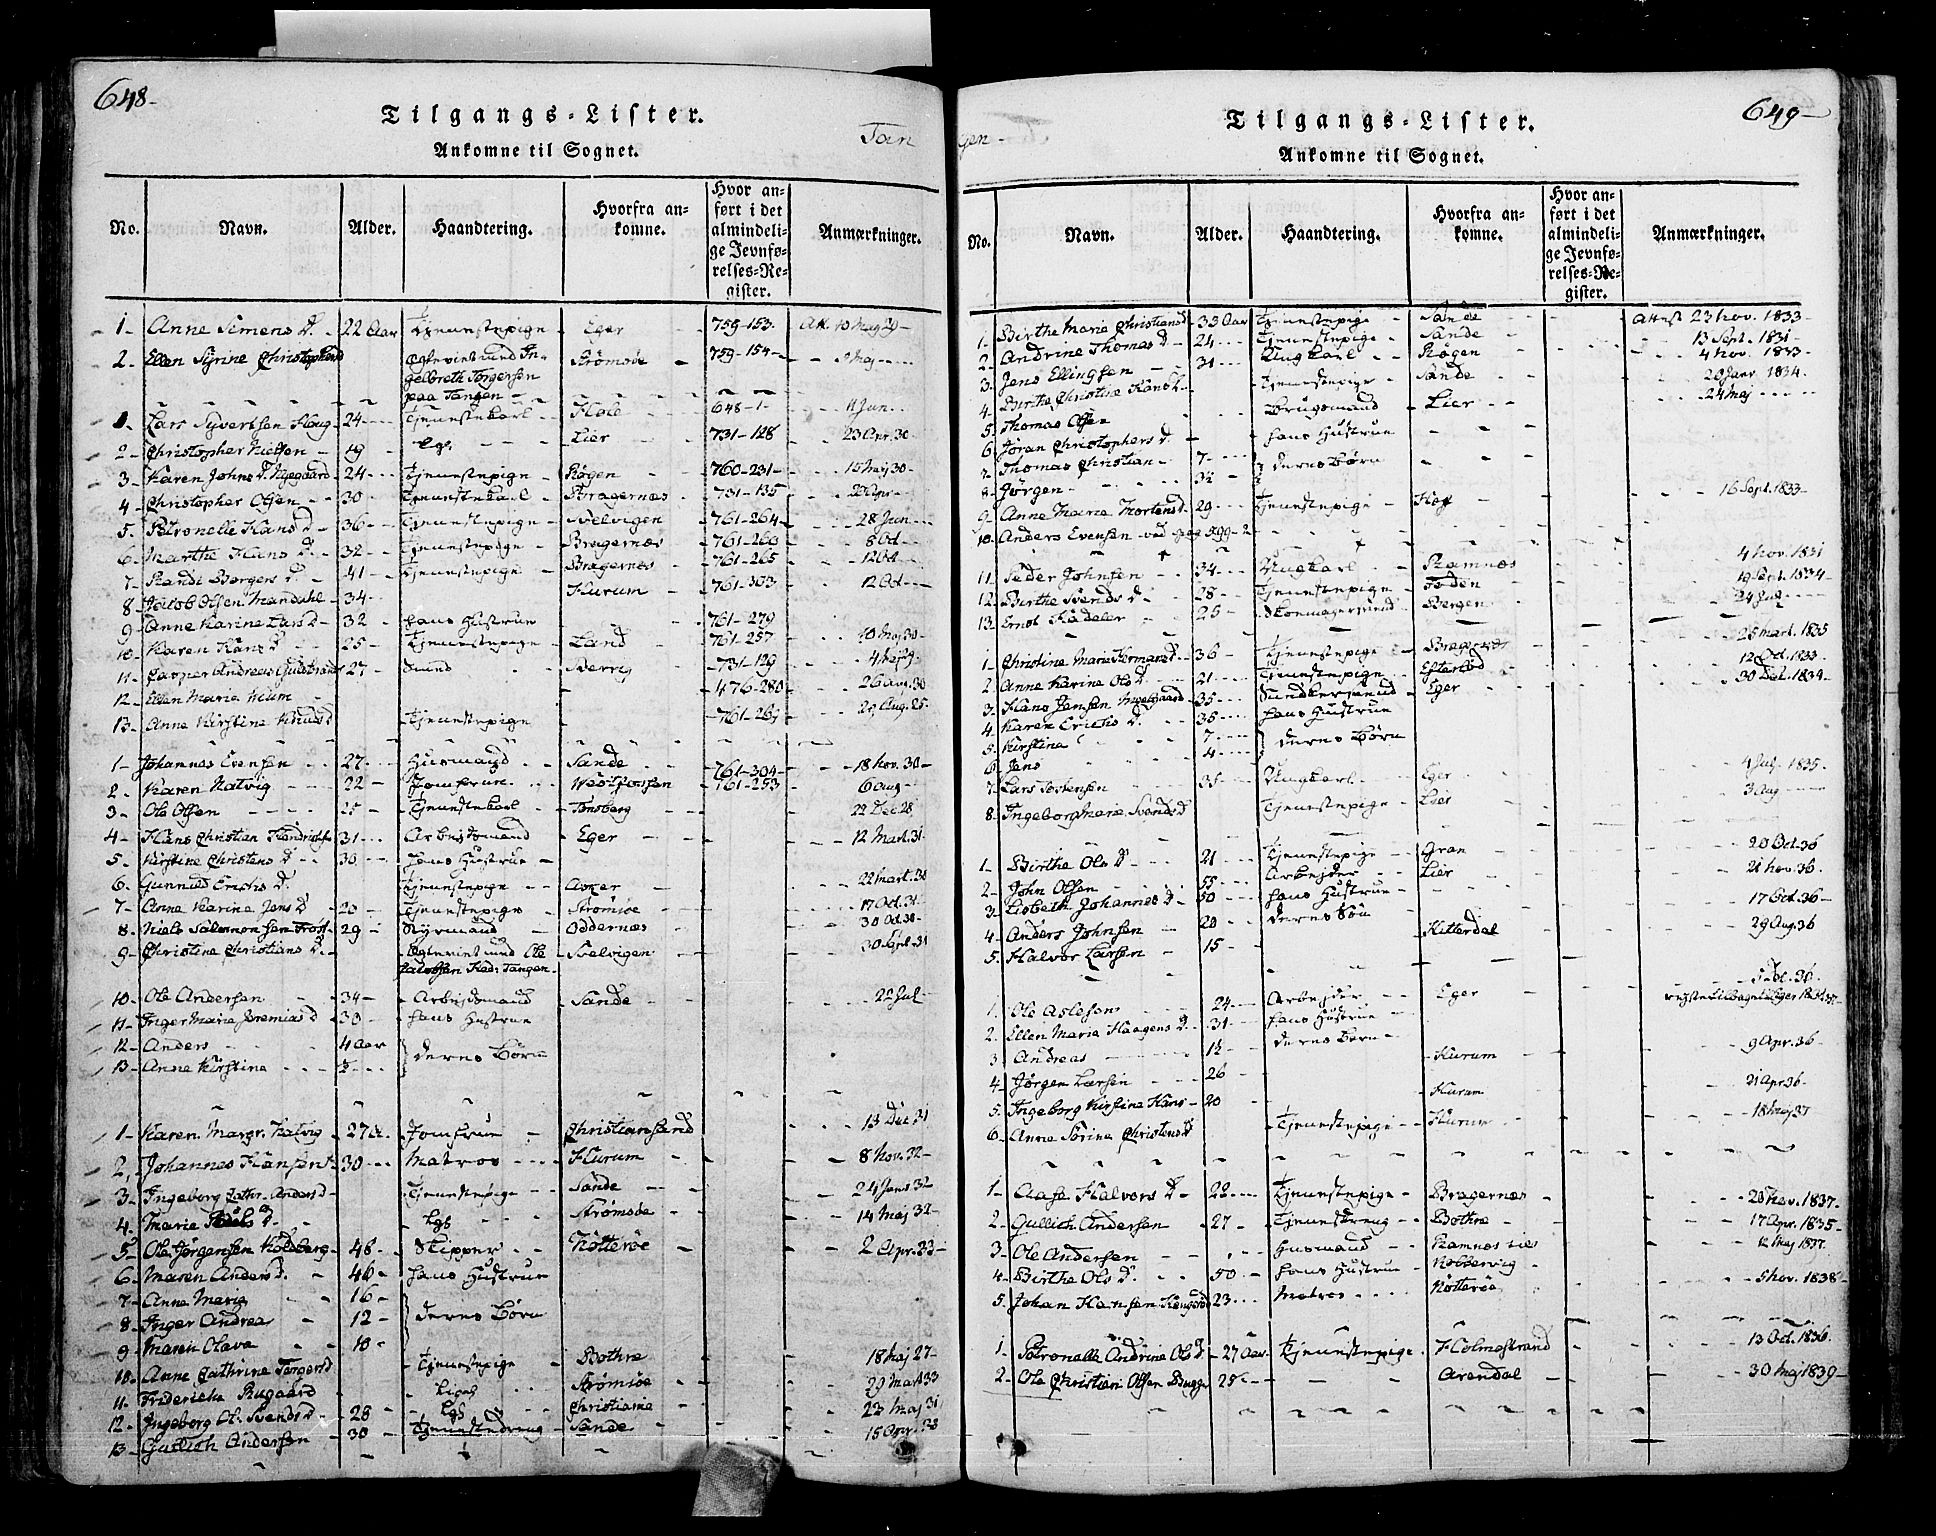 648-
Tilgangs-Lister.
Ankomne til Sognet.
Tan
No. Navn. Alder. Haandtering. Hvorfra ankomne. Hvor anført i det almindelige Jevnførelses-Register. Anmærkninger.
1- Anne Simens D. 22 Aar Tjenestepige Eger 759-153
2. Ellen Syrine Christophersd Strømsøe 759-154
gelbreth Torgersen
paa Tangen
1. Lars Syvertsen Haug 24 Tjenestekarl Hole 648-1 11 Jun
2- Christopher Nielsen 49 Lgs. Lier 731-128 23 Apr. 30
3. Karen Johns D. Nyegaard 24 Tjenestepige Røgen 760-231 15 Maj 30
4 Christopher Olsen 30 Tjenestekarl Bragernæs 731-135
5. Petronelle Hans D 36 Tjenestepige Svelvigen 761-264 28 Jun
6. Marthe Hans D. 32 Tjenestepige Bragernæs 761-260 8 Oct
7- Randi Børgers D 41 Tjenestepige Bragernæs 761-265 12 Oct
8 Jacob Olsen Mandahl 34 Hurum 761-303 12 Oct
9- Anne Karine Lars D 32 hans Hustrue 761-279
10. Karen Hans D 25 Tjenestepige Land 761-257 10 Maj 30
11. Casper Andreas Gulbrands 27 Smed Sverrig 731-129
12 Ellen Maria Mum 476-280 26 Aug 30
13. Anne Kirstine Knuds D Tjenestepige 761-261 Aug. 25
1- Johannes Evensen 27 Huusmand Sande 761-304 18 Nov. 30
2- Karen Natvig 22 Jomfrue 761-253 6 Aug
3- Ole Olsen 25 Tjenestekarl Tønsberg 22 Dec 28
4- Hans Christian Hendrichs 31 Arbeidsmand Eger 12 Mart. 31
5. Kirstine Christens D 30 hans Hustrue
6. Gunnild Erichs D. Tjenestepige Asker 22 Mart. 30
7- Anne Karine Jens D 20 Tjenestepige Strømsøe 17 Oct. 31
8. Niels Salomonsen Trøst 29 Styrmand Oddernæs 30 Oct. 30
9 Christine Christians D. Ole Svelvigen 30 Sept. 31
Jacobsen Tangen
10. Ole Andersen 34 Arbejdsmand Sande 22 Jul
11- Inger Maria Jeremias D 30 hans Hustrue
12- Anders 4 Aar deres Børn
13- Anne Kirstine
1- Karen Margr. Natvig 27 Jomfrue Christiansand 13 Dec. 31
2, Johannes Hansen 30 Matros Hurum 8 Nov. 32
3. Ingeborg Cathr. Anders D Tjenestepige Sande 24 Jan 32
4. Marie Lgs Strømsøe 14 Maj 32
5 Ole Jørgensen Holdberg 48 Skipper Nøtterøe 2 Apr. 33
6. Maren Anders D. 46 hans Hustrue
7- Anne Maria 16
8- Inger Andrea 12 deres Børn
9- Maren Olava 10
10. Anne Cathrine Torgers D Tjenestepige Bothne 18 Maj 27
11 Friderich Rugaard Strømsøe 29 Mart 33
12- Ingeborg Ol. Svends D 28 Lgs Christiania 23 Maj 31
13- Gullich Andersen 30 Tjenestedreng Sande 15 Apr. 33
649-
Tilgangs-Lister.
gen-
Ankomne til Sognet.
No. Navn. Alder. Haandtering. Hvorfra ankomne. Hvor anført i det almindelige Jevnførelses-Register. Anmærkninger.
1- Birthe Marie Christians D 33 Aar Tjenestepige Sande Attest 23 Nov. 1833
2- Andrine Thomas D 24 Tjenestepige Sande 13 Sept. 1831
3. Jens Ellingsen 31 Ungkarl Røgen 4 Nov. 1833
4- Birthe Christine Hans D Tjenestepige Sande 20 Janr 1834
5. Thomas Olsen Brugsmand Lier 24 Maj
6 Jøran Christophers D. hans Hustrue
7- Thomas Christian 7 deres Børn
8- Jørgen
9- Anne Marie Mortens D 29 Tjenestepige Hof 16 Sept. 1833
10. Anders Evensen ved pag 599-2
11- Peder Johnsen 34 Ungkarl Ramnæs 4 Nov. 1831
12. Birthe Svends D 28 Tjenestepige 19 Sept. 1834
13. Ernst Hadeler 25 Skomagersvend Bergen 24 Jul
1 Christine Marie Hermans D 36 Tjenestepige Bragernæs 25 Mart. 1835
2. Anne Karine Ols D. 21 Tjenestepige 12 Oct. 1833
3. Hans Jensen 35 Eger 30 Dec. 1834
4. Karen Erichs D. 36 hans Hustrue
5. Kirstine 7 deres Børn
6. Jens 4
7. Lars Torstensen 35 Ungkarl Eger 4 Jul 1835
8. Ingeborg Marie Svends D Tjenestepige Lier 3 Aug
1- Birthe Ols D 21 Tjenestepige Gran 20 Oct. 36
2- John Olsen 55 Arbejder Lier 21 Nov. 36
3. Lisbeth Johannes D 50 hans Hustrue 17 Oct. 36
4. Anders Johnsen 20 deres Søn
5. Halvor Larsen 15 Hitterdal 29 Aug. 36
1. Ole Aslesen 24 Arbejder Eger
2. Ellen Maria Haagens D 31 hans Hustrue
3 Andreas deres Børn
4- Jørgen Larsen 26 Hurum 9 Apr. 36
5. Ingeborg Kirstine Hans 20 Hurum 21 Apr 36
6- Anne Sørine Christens D Tjenestepige Hurum 18 Maj 37
1- Aase Halvors D 22 Tjenestepige Bragernæs Nov. 1837
2- Gullich Andersen 27 Tjenestedreng Bothne 17 Apr. 1835
3- Ole Andersen Husmand Ramnæs 12 Maj 1837
4- Birthe Ols D. 50 hans Hustrue
5. Johan Hansen 23 Matros Nøtterøe 5 Nov. 1838
1- Petronelle Andrine Ols D 27 Aar Tjenestepige Holmestrand 13 Oct. 1836
2- Ole Christian Olsen Brygger 25 Arendal 30 Maj 1839